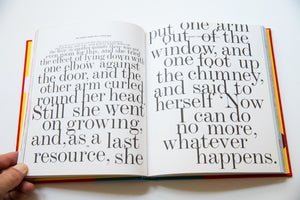 room for this, and she tried
the effect of lying down with
one elbow against
the door, and the
other arm curled
round her head.
Still she went
on growing,
and, as a last
resource, she
put one arm
out of the
window, and
one foot up
the chimney,
and said to
herself 'Now
I can do
no more,
whatever
happens.